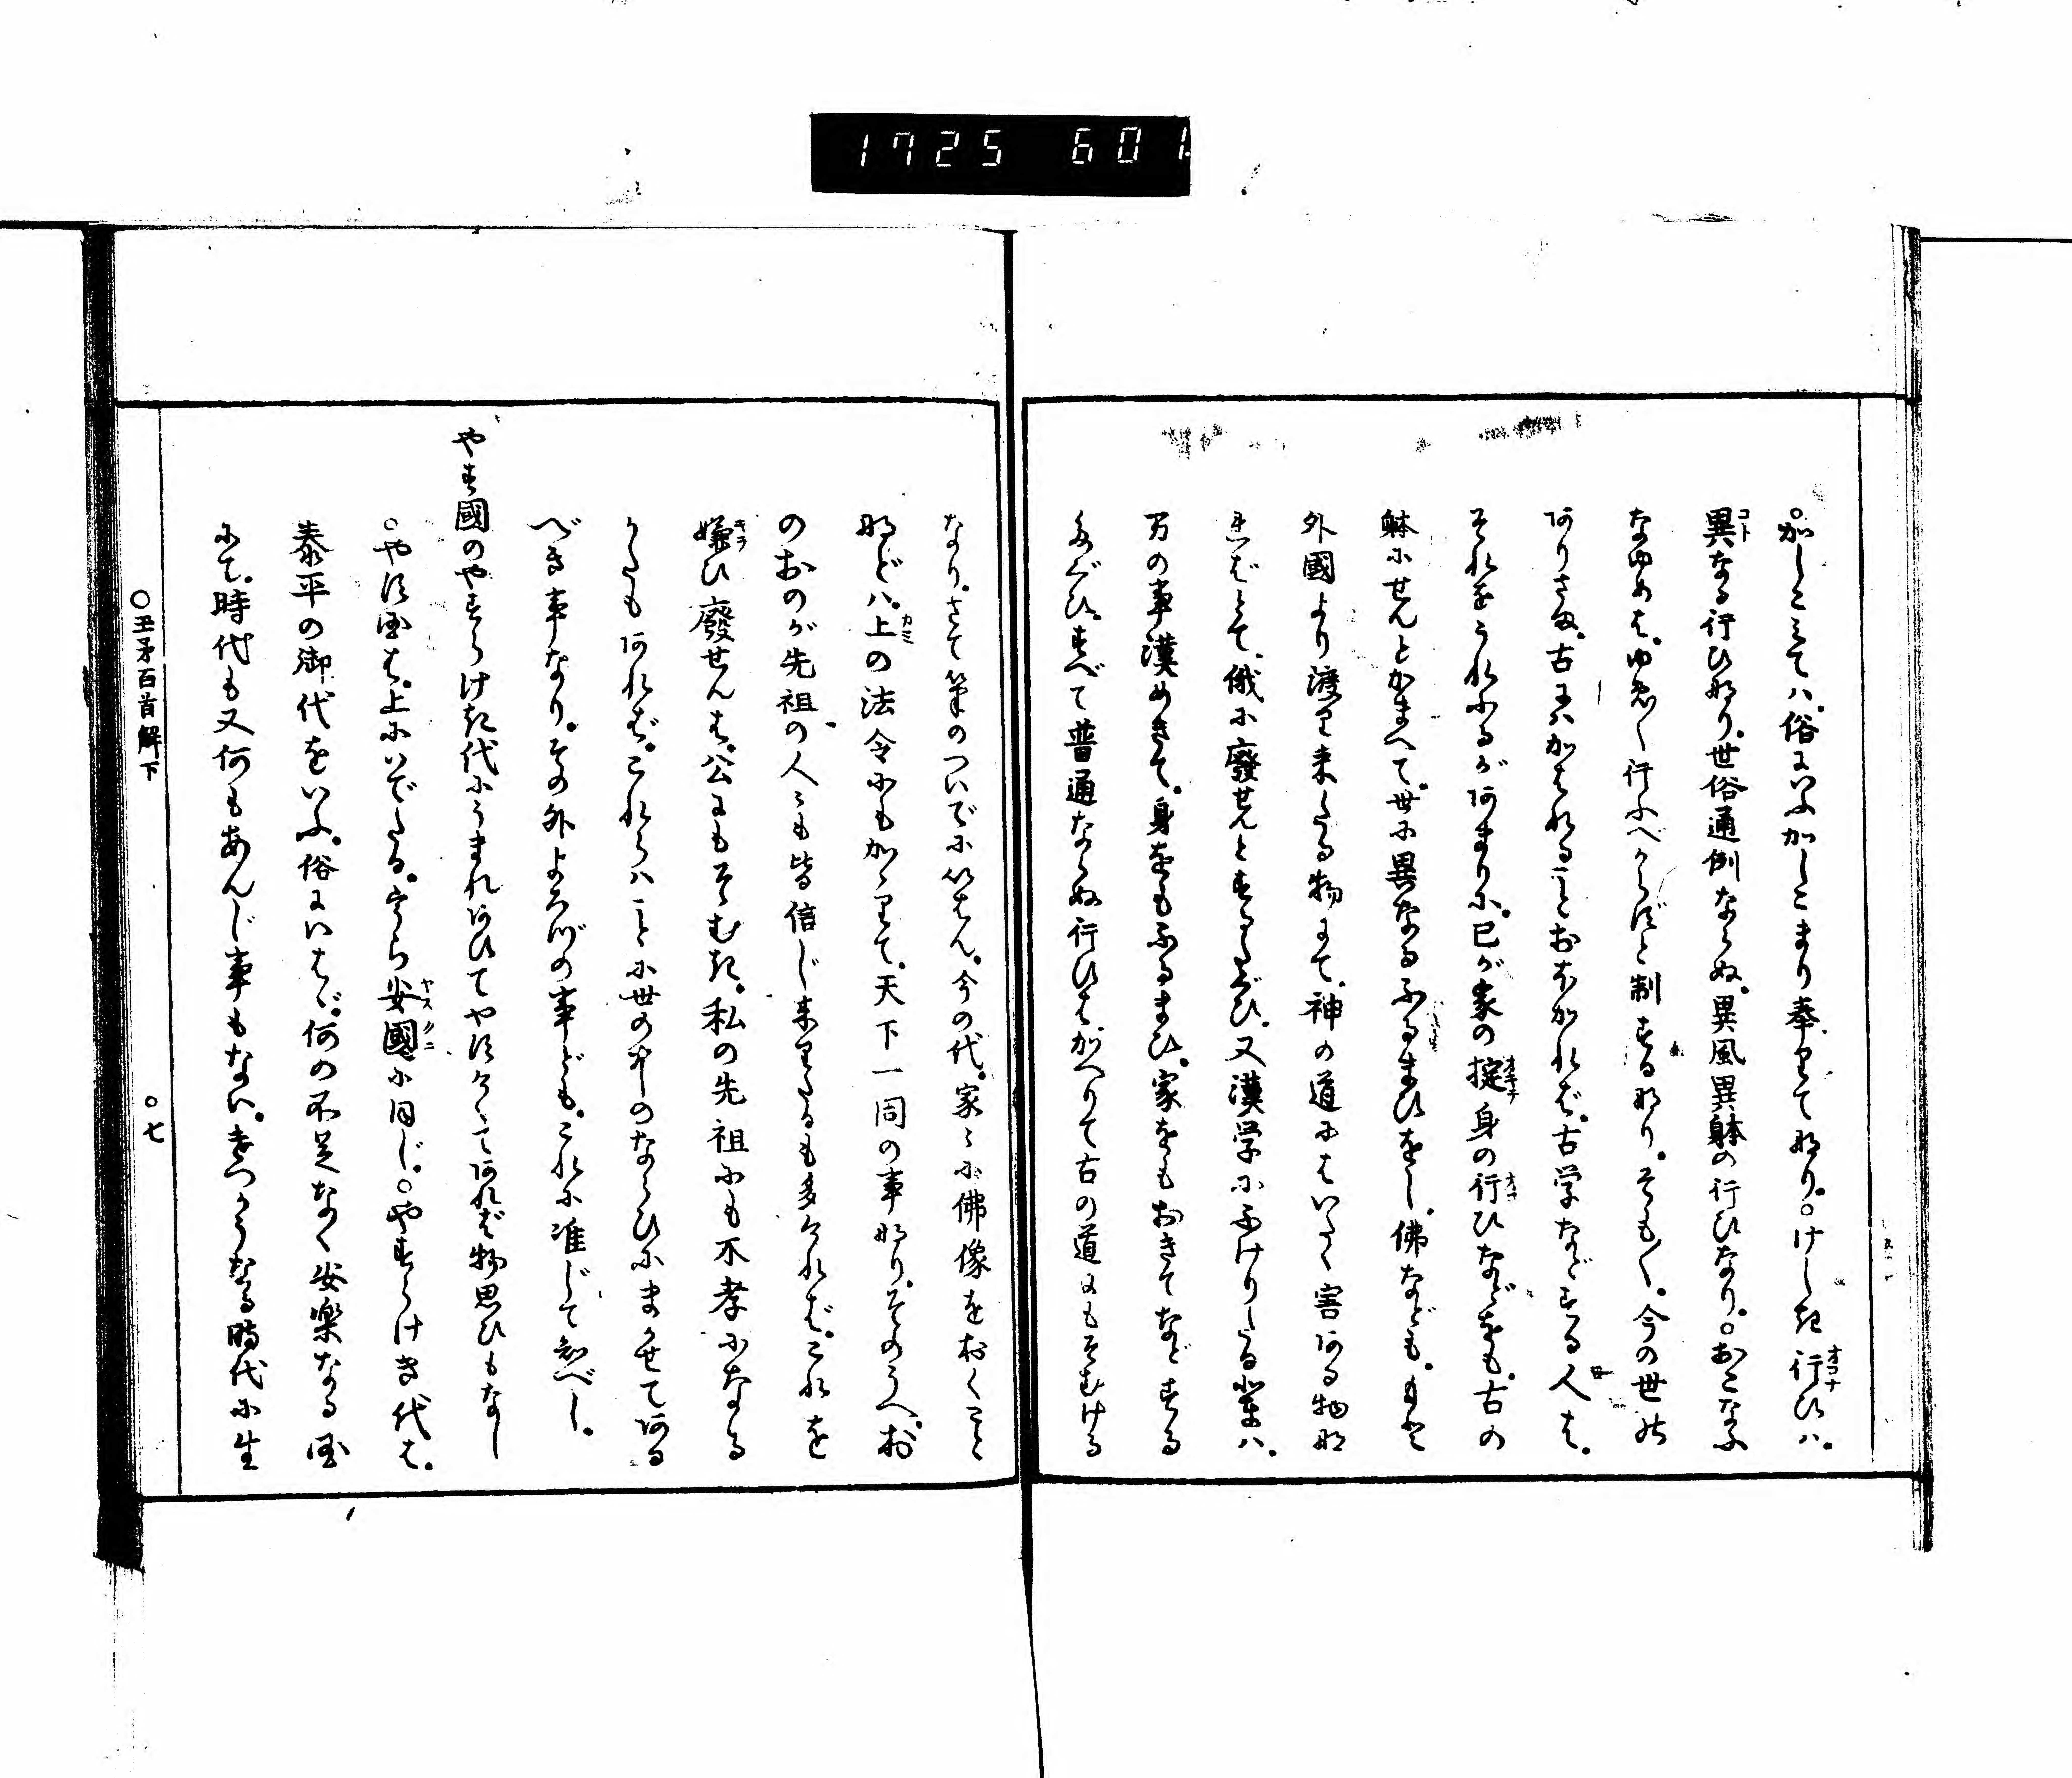 1725 601
○かしこみてハ。俗にいふかしこまり奉りてなり。○けしき行ひハ。
異なる行ひなり。世俗通例ならぬ。異風異躰の行ひなり。○おこなふ
なゆめは。ゆめ〳〵行ふべからずと制するなり。そも〳〵。今の世の
ありさま。古にハかはれることおほかれば。古学などする人は。
それをうれふるがあまりに。己が家の掟身の行ひなどをも。古の
躰にせんとかまへて。世に異なるふるまひをし。佛なども。もと
外國より渡り来たる物にて。神の道にはいたく害ある物な
ればとて。俄に廢せんとするたぐひ。又漢学にふけりたる輩ハ。
万の事漢めきて。身をもふるまひ。家をもおきてなどする
たぐひ。すべて普通ならぬ行ひはかへりて古の道にもそむける
なり。さて筆のついでにいはん。今の代。家々に佛像をおくこと
などハ。上の法令にもかゝりて。天下一同の事なり。そのうへ。お
のおのが先祖の人々も皆信じ来りたるも多ければ。これを
嫌ひ廢せんは。公にもそむき。私の先祖にも不孝になる
かたもあれば。これらハことに世の中のならひにまかせてある
べき事なり。その外よろづの事ども。これに准じて知べし。
やす國のやすらけき代にうまれあひてやすけくてあれば物思ひもなし
○やす国は。上にいでたる。うら安國に同じ。○やすらけき代は。
泰平の御代をいふ。俗にいはゞ。何の不足なく安楽なる国
にて。時代も又何もあんじ事もない。けつかうなる時代に生
○玉矛百首解下
○七